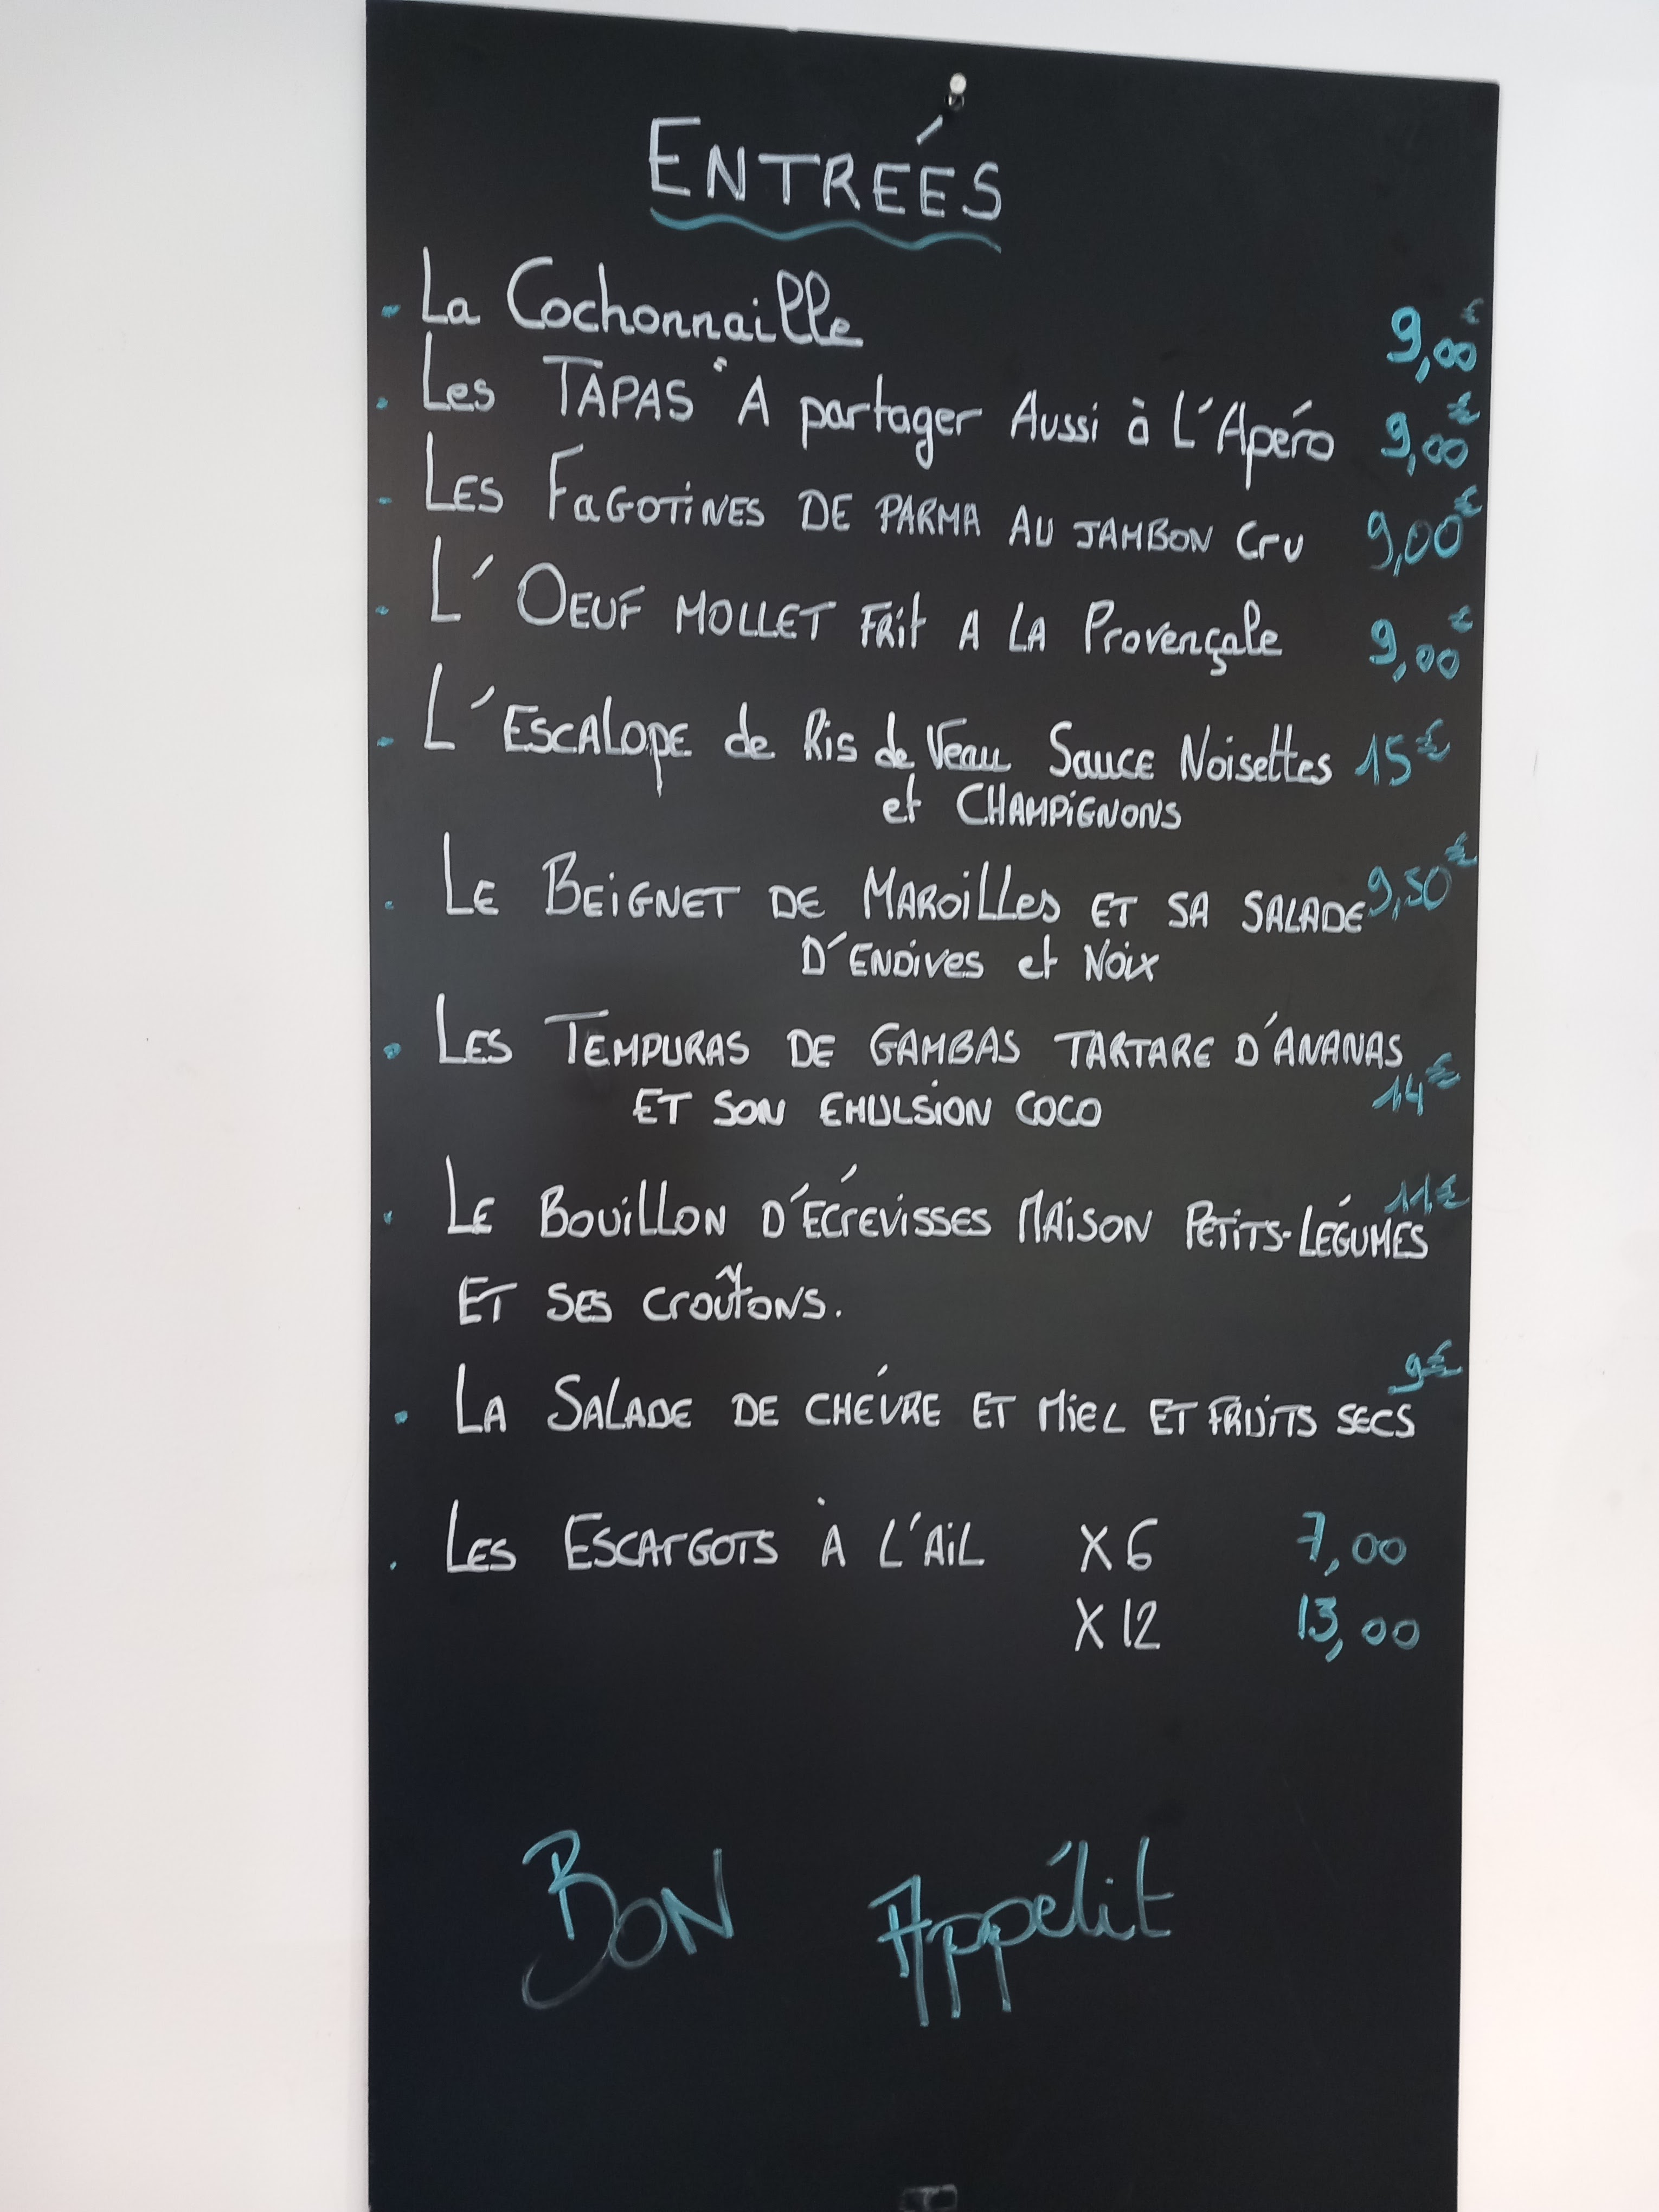 ENTREÉS
- La Cochonnaille 9,00€
. Les TAPAS "A partager Aussi à L'Apéro 9,00€
- LES FAGOTINES DE PARMA AU JAMBON Cru 9,00€
- L'OEUF MOLLET FRit A LA Provençale 9,00€
- L'ESCALOPE de Ris de Veau SAUCE Noisettes 15€
et CHAMPIGNONS
. LE BEIGNET DE MAROILLES ET SA SALADE 9,50€
D'ENDIVES et NOIX
. LES TEMPURAS DE GAMBAS TARTARE D'ANANAS
ET SON EMULSION COCO 14€
. LE BOUILLON D'ÉCREVISSES MAISON PETITS-LÉGUMES 11€
ET SES CROÛTONS.
. LA SALADE DE CHÉVRE ET MIEL ET FRUITS SECS 9€
. LES ESCARGOTS À L'AIL X6 7,00
X12 13,00
BON Appétit